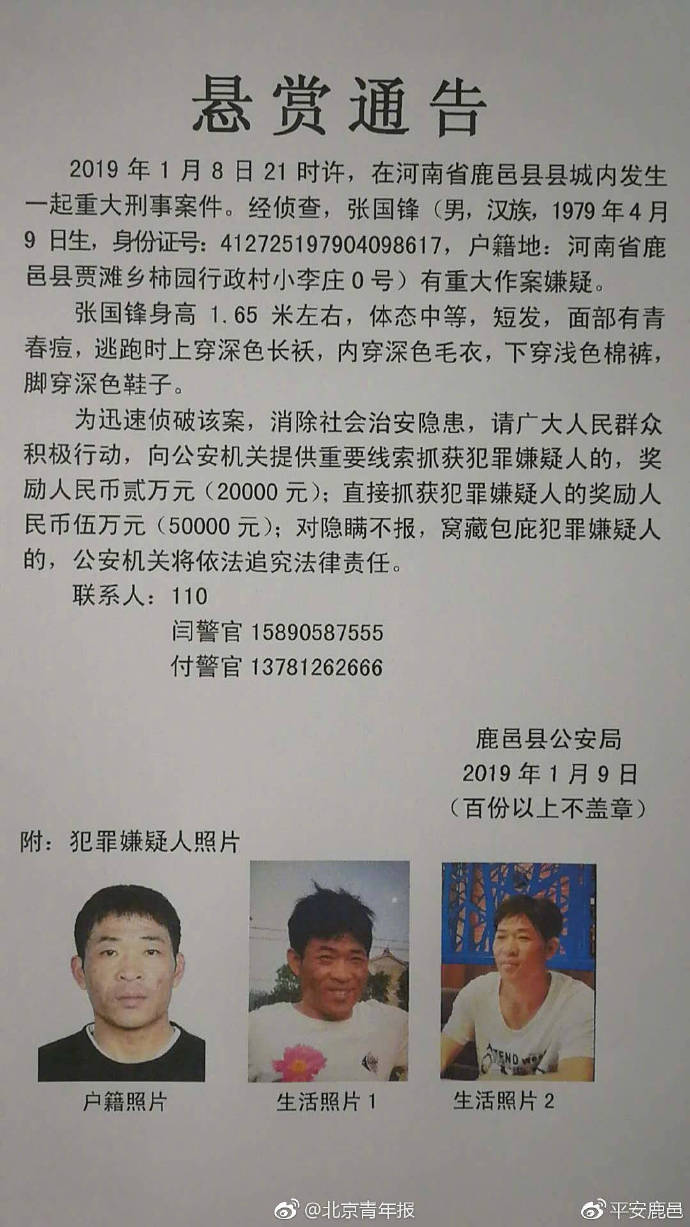 悬赏通告
2019 年 1 月 8 日 21 时许，在河南省鹿邑县县城内发生
一起重大刑事案件。经侦查，张国锋（男，汉族，1979 年 4 月
9 日生，身份证号：412725197904098617，户籍地：河南省鹿
邑县贾滩乡柿园行政村小李庄 0 号）有重大作案嫌疑。
张国锋身高 1.65 米左右，体态中等，短发，面部有青
春痘，逃跑时上穿深色长袄，内穿深色毛衣，下穿浅色棉裤，
脚穿深色鞋子。
为迅速侦破该案，消除社会治安隐患，请广大人民群众
积极行动，向公安机关提供重要线索抓获犯罪嫌疑人的，奖
励人民币贰万元（20000 元）；直接抓获犯罪嫌疑人的奖励人
民币伍万元（50000 元）；对隐瞒不报，窝藏包庇犯罪嫌疑人
的，公安机关将依法追究法律责任。
联系人：110
闫警官 15890587555
付警官 13781262666
鹿邑县公安局
2019 年 1 月 9 日
（百份以上不盖章）
附：犯罪嫌疑人照片
户籍照片 生活照片 1 生活照片 2
@北京青年报 平安鹿邑